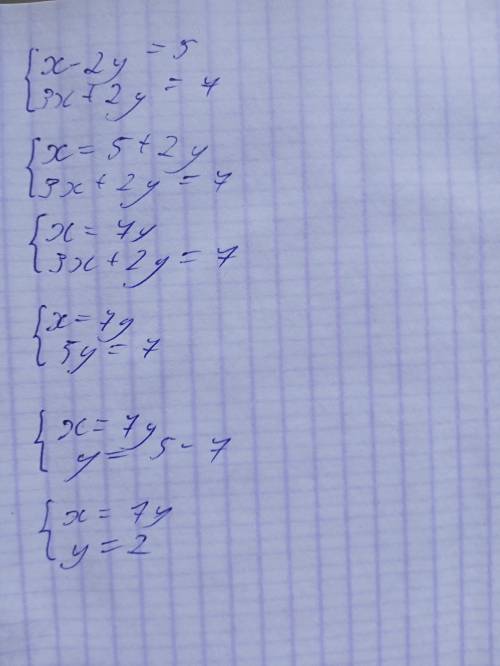 x - 2y = 5
3x + 2y = 7
x = 5 + 2y
3x + 2y = 7
x = 7y
3x + 2y = 7
x = 7y
5y = 7
x = 7y
y = 5 - 7
x = 7y
y = 2